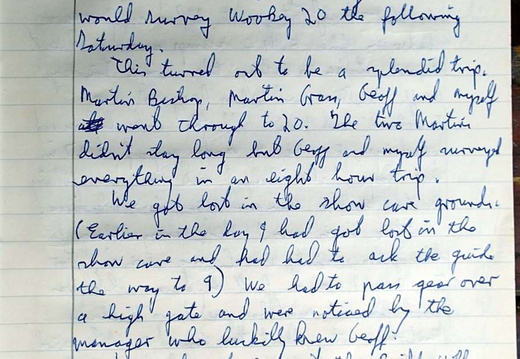 would survey Wookey 20 the following
Saturday.
This turned out to be a splendid trip.
Martin Bishop, Martin Grass, Geoff and myself
went through to 20. The two Martins
didn't stay long but Geoff and myself surveyed
everything in an eight hour trip.
We got lost in the show cave grounds.
(Earlier in the day I had got lost in the
show cave and had had to ask the guide
the way to 9) We had to pass gear over
a high gate and were noticed by the
manager who luckily knew Geoff.